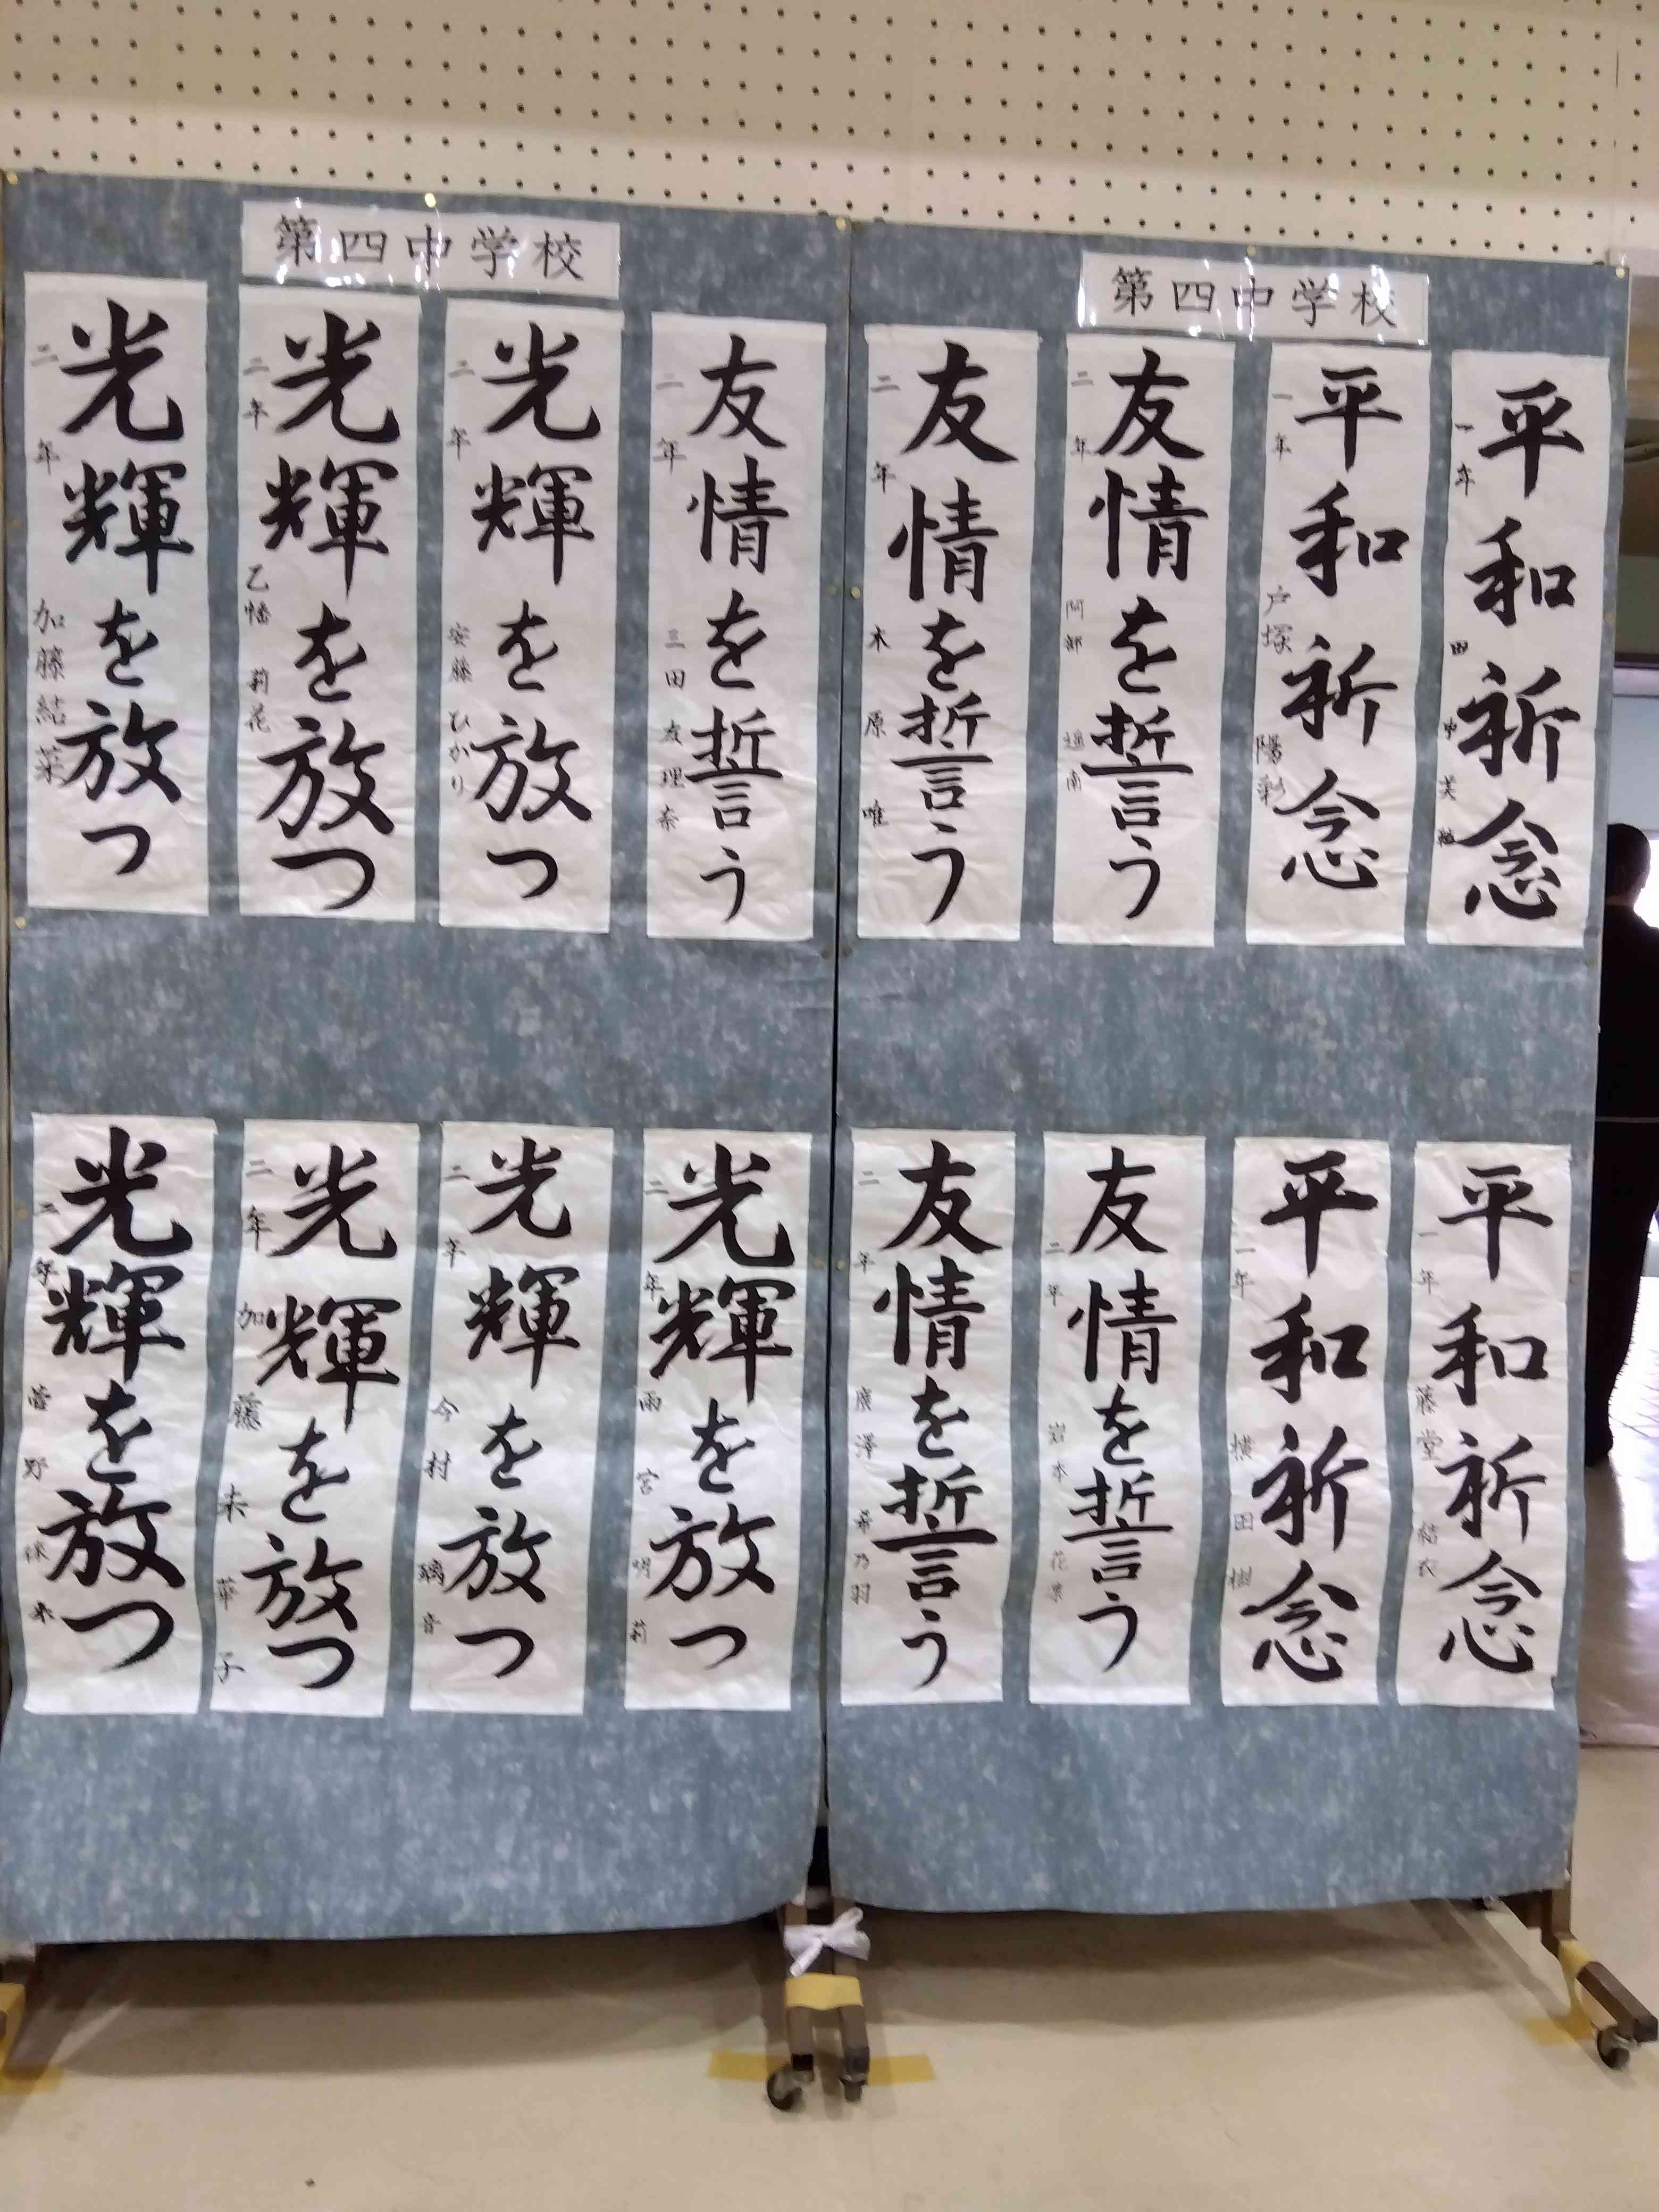 第四中学校
平和祈念
一年 田中美
平和祈念
一年 戸塚陽彩
友情を誓う
二年 阿部遥南
友情を誓う
二年 木原唯
平和祈念
一年 藤堂結衣
平和祈念
一年 横田樹
友情を誓う
二年 岩本花
友情を誓う
二年 廣澤希乃羽
第四中学校
友情を誓う
二年 三田友理奈
光輝を放つ
二年 安藤ひかり
光輝を放つ
二年 乙幡莉花
光輝を放つ
二年 加藤結菜
光輝を放つ
二年 雨宮明莉
光輝を放つ
二年 今村璃音
光輝を放つ
二年 加藤未華子
光輝を放つ
二年 菅野